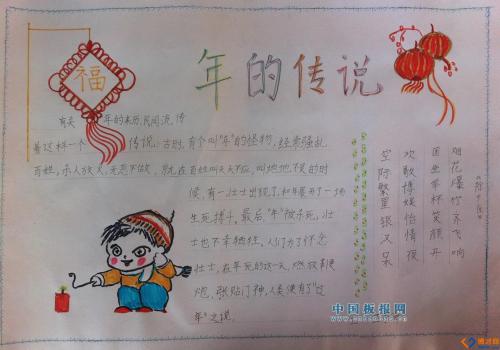 福
年的传说
有关年的来历,民间流传
着这样一个传说:古时,有个叫"年"的怪物,经常骚乱
百姓,杀人放火,无恶不做,就在百姓叫天天不应,叫地地不灵的时
候,有一壮士出现了,和年展开了一场
生死搏斗。最后,"年"被杀死,壮
士也不幸牺牲。人们为了怀念
壮士,在年死的这一天,燃放鞭
炮,张贴门神,人类便有了"过
年"之说。
烟花爆竹齐飞响
举杯笑颜开
欢歌博娱怡情夜
空际繁星银汉呆
中国板报网